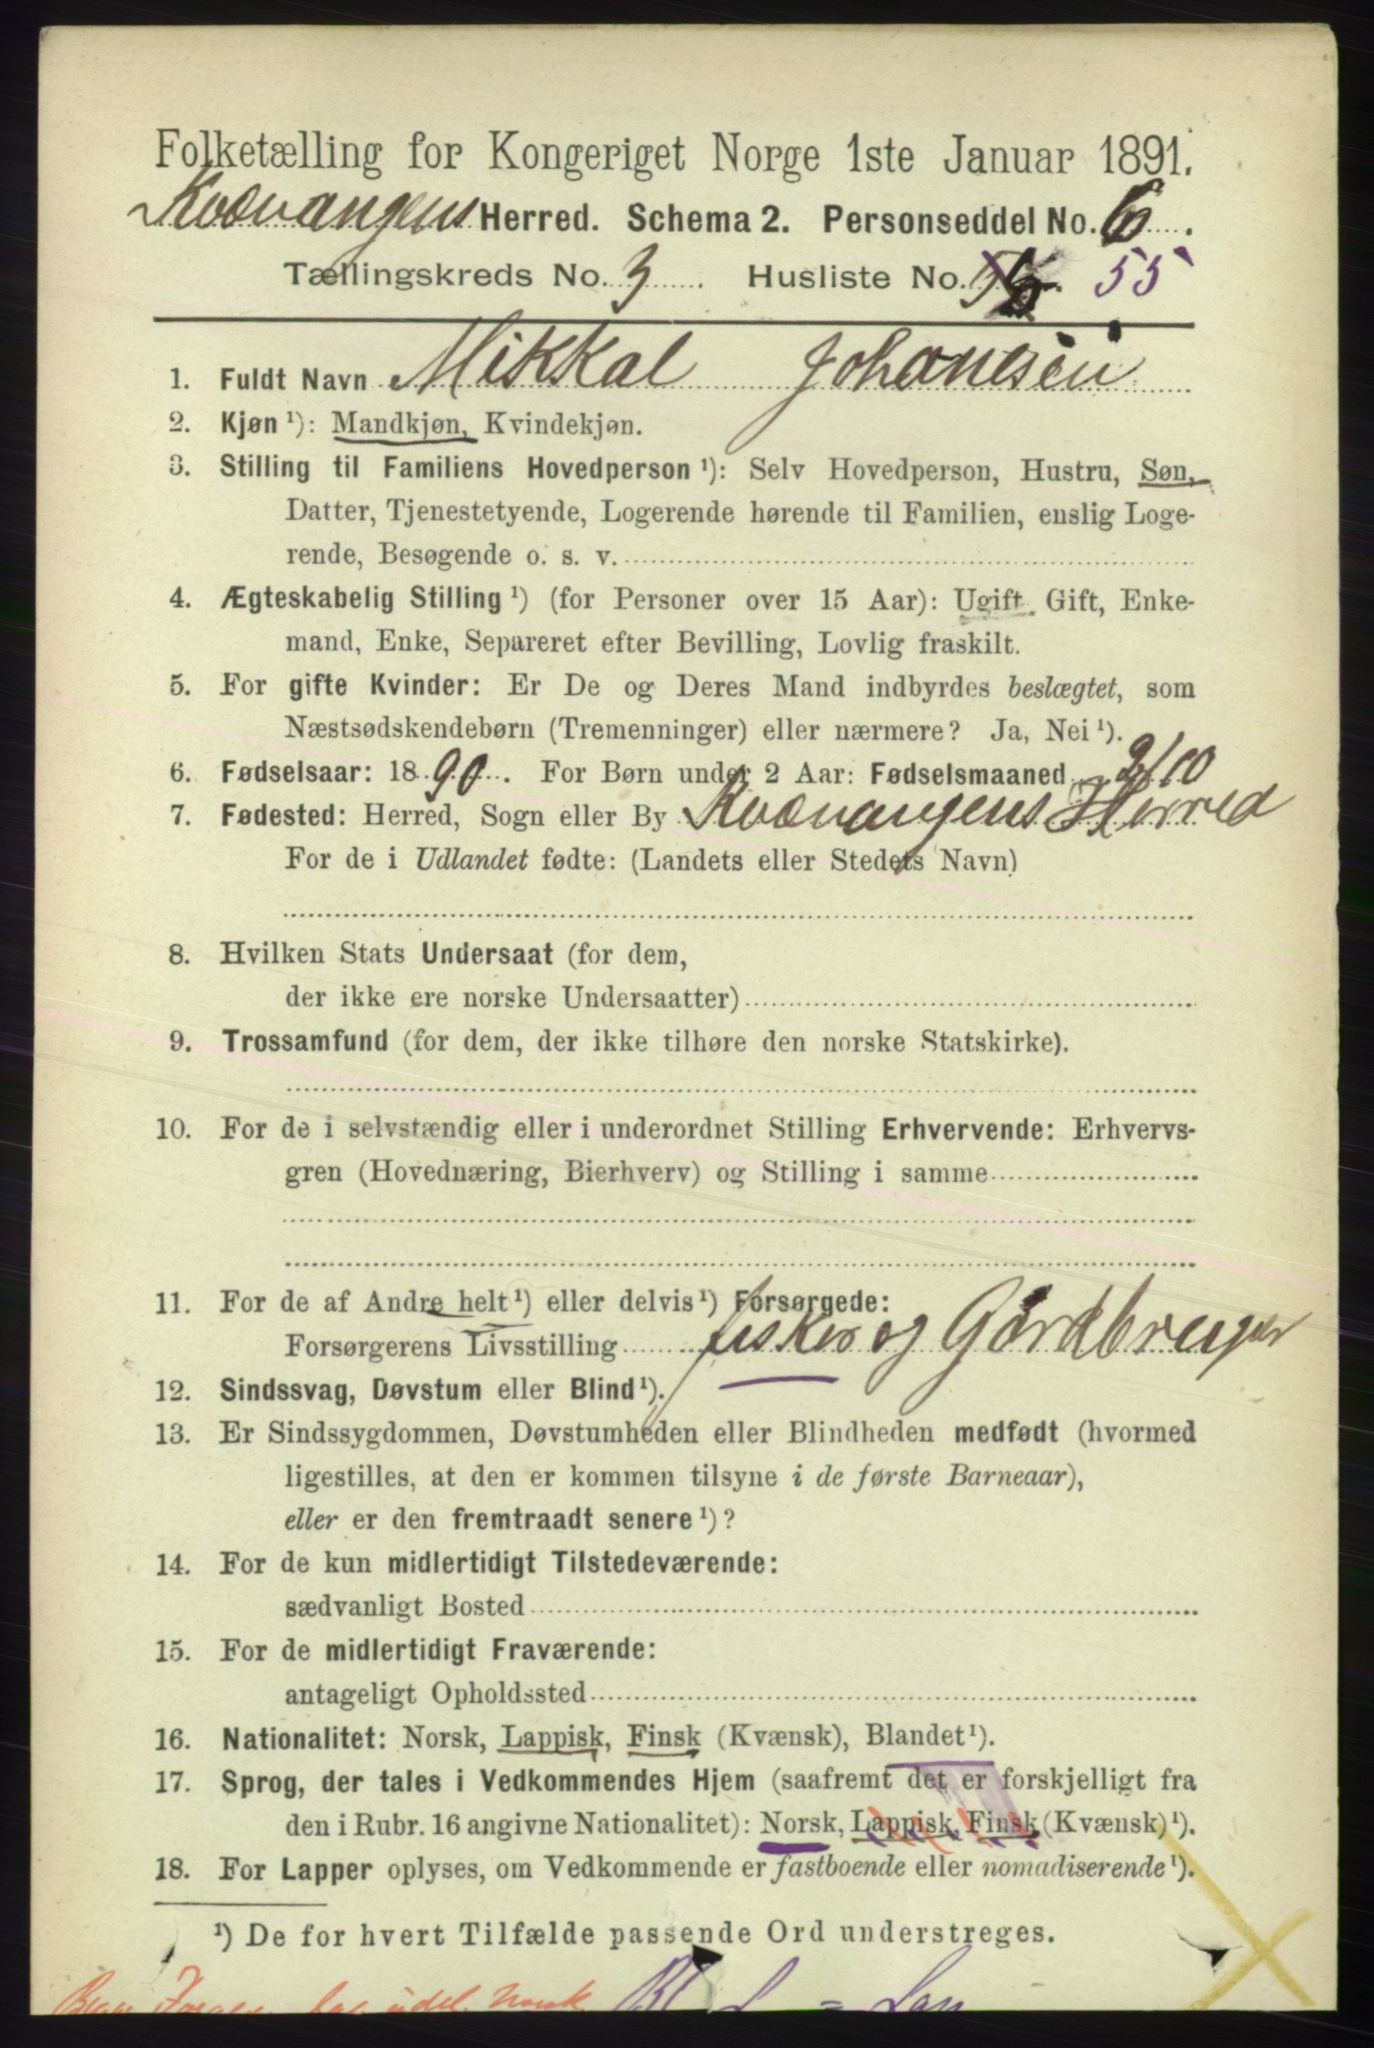 Folketælling for Kongeriget Norge 1ste Januar 1891.
Kvænangens Herred. Schema 2. Personseddel No. 6.
Tællingskreds No. 3. Husliste No. 55
1. Fuldt Navn Mikkal Johanesen
2. Kjøn ¹): Mandkjøn, Kvindekjøn.
3. Stilling til Familiens Hovedperson ¹): Selv Hovedperson, Hustru, Søn,
Datter, Tjenestetyende, Logerende hørende til Familien, enslig Loge-
rende, Besøgende o. s. v.
4. Ægteskabelig Stilling ¹) (for Personer over 15 Aar): Ugift, Gift, Enke-
mand, Enke, Separeret efter Bevilling, Lovlig fraskilt.
5. For gifte Kvinder: Er De og Deres Mand indbyrdes beslægtet, som
Næstsødskendebørn (Tremenninger) eller nærmere? Ja, Nei ¹).
6. Fødselsaar: 1890. For Børn under 2 Aar: Fødselsmaaned 9/10
7. Fødested: Herred, Sogn eller By Kvænangens Herred
For de i Udlandet fødte: (Landets eller Stedets Navn)
8. Hvilken Stats Undersaat (for dem,
der ikke ere norske Undersaatter)
9. Trossamfund (for dem, der ikke tilhøre den norske Statskirke).
10. For de i selvstændig eller i underordnet Stilling Erhvervende: Erhvervs-
gren (Hovednæring, Bierhverv) og Stilling i samme
11. For de af Andre helt ¹) eller delvis ¹) Forsørgede:
Forsørgerens Livsstilling fisker og Gårdbruger
12. Sindssvag, Døvstum eller Blind ¹).
13. Er Sindssygdommen, Døvstumheden eller Blindheden medfødt (hvormed
ligestilles, at den er kommen tilsyne i de første Barneaar),
eller er den fremtraadt senere ¹)?
14. For de kun midlertidigt Tilstedeværende:
sædvanligt Bosted
15. For de midlertidigt Fraværende:
antageligt Opholdssted
16. Nationalitet: Norsk, Lappisk, Finsk (Kvænsk), Blandet ¹).
17. Sprog, der tales i Vedkommendes Hjem (saafremt det er forskjelligt fra
den i Rubr. 16 angivne Nationalitet): Norsk, Lappisk, Finsk (Kvænsk) ¹).
18. For Lapper oplyses, om Vedkommende er fastboende eller nomadiserende ¹).
¹) De for hvert Tilfælde passende Ord understreges.